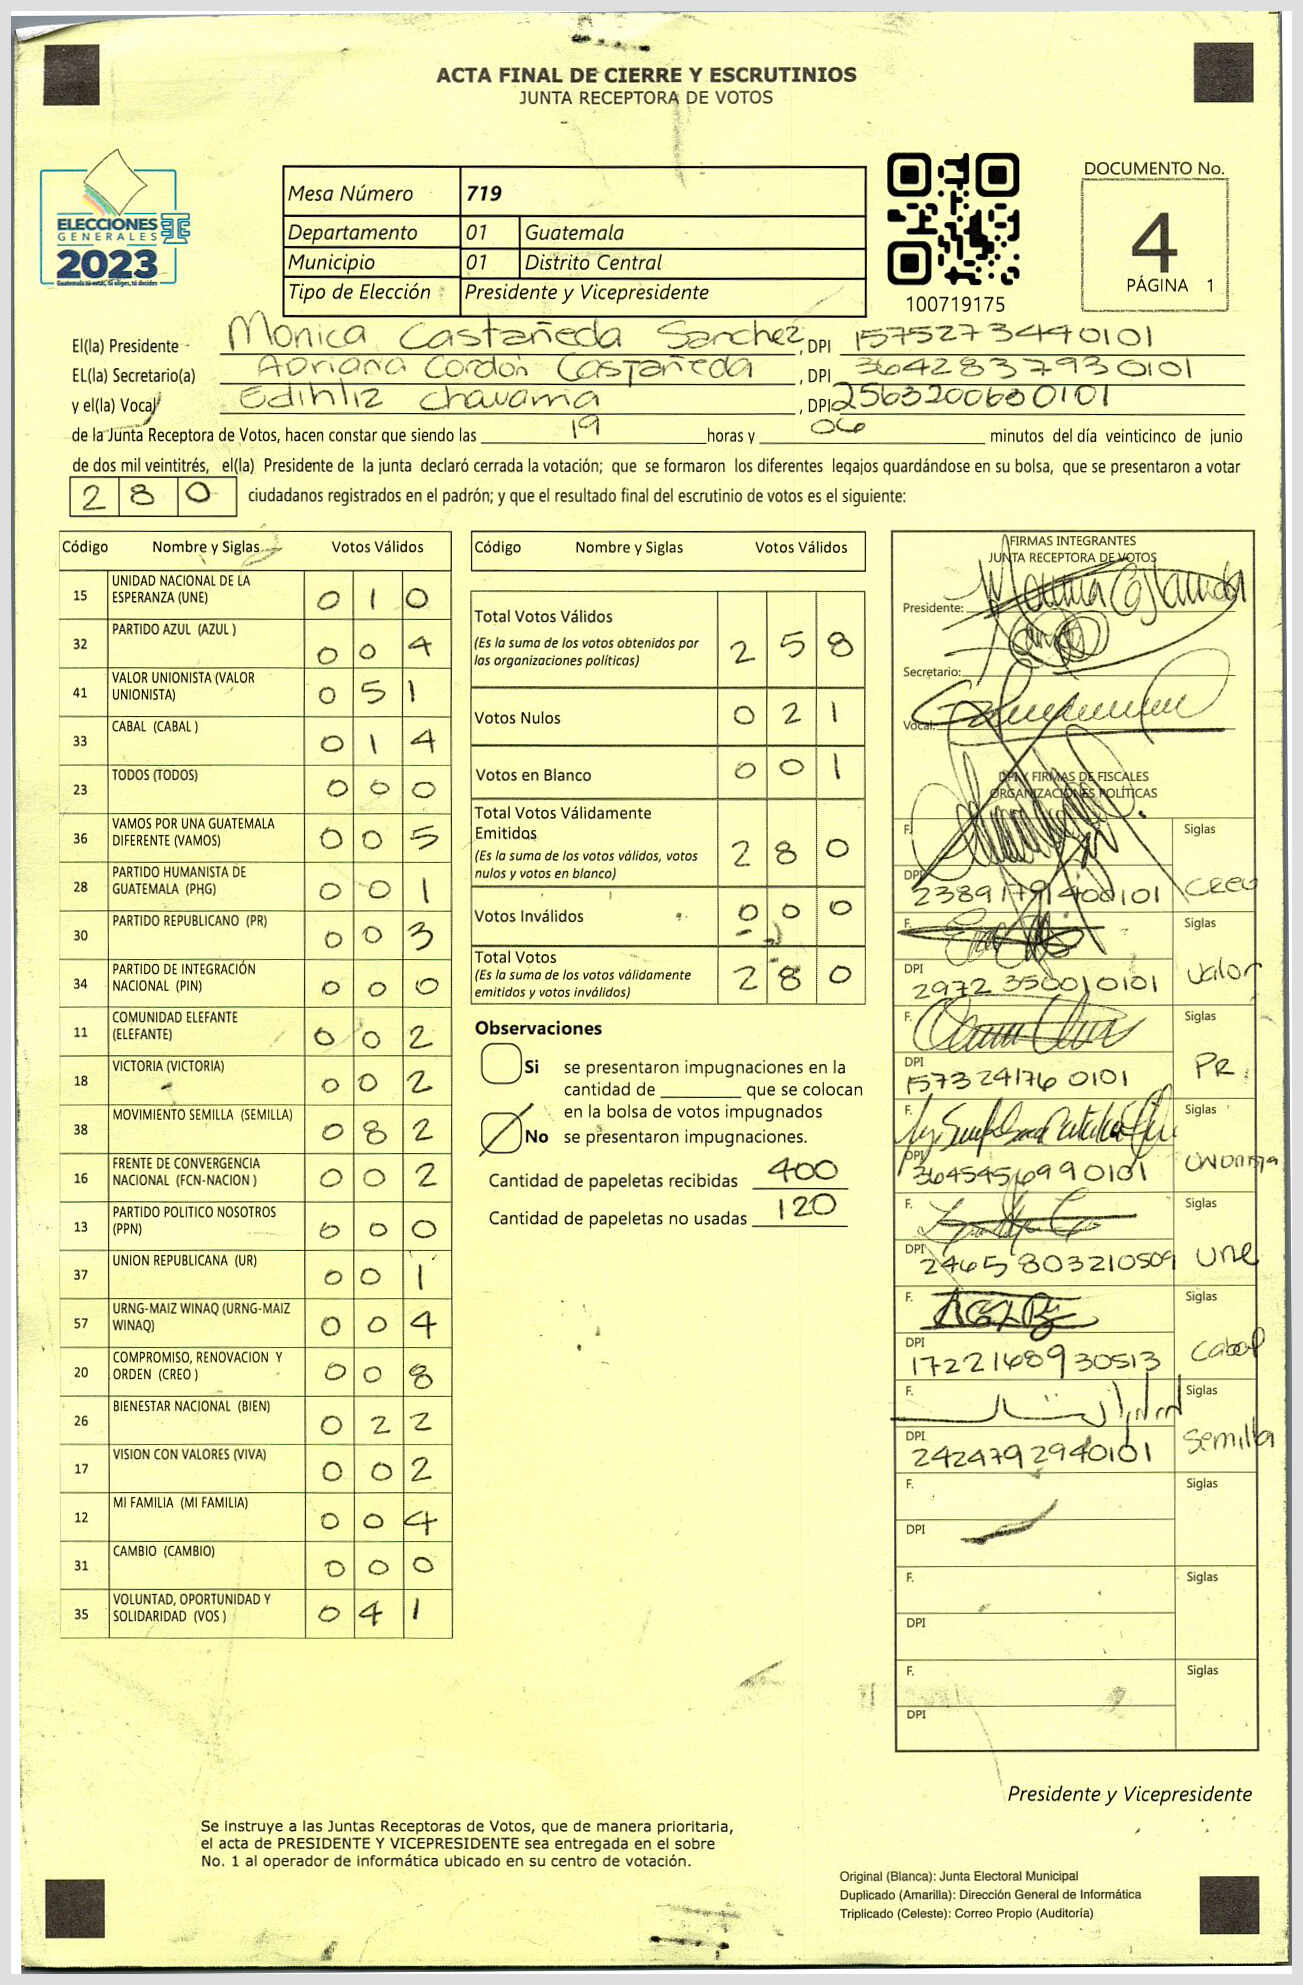 ACTA FINAL DE CIERRE Y ESCRUTINIOS
JUNTA RECEPTORA DE VOTOS
ELECCIONES
GENERALES
2023
Guatemala tú estás, tú eliges, tú decides
Mesa Número 719
Departamento 01 Guatemala
Municipio 01 Distrito Central
Tipo de Elección Presidente y Vicepresidente
100719175
DOCUMENTO No.
4
PÁGINA 1
El(la) Presidente Monica Castañeda Sanchez, DPI 1575273440101
EL(la) Secretario(a) Adriana Cordón Castañeda, DPI 3642837930101
y el(la) Vocal Chavarria, DPI 2563200630101
de la Junta Receptora de Votos, hacen constar que siendo las 19 horas y 06 minutos del día veinticinco de junio
de dos mil veintitrés, el(la) Presidente de la junta declaró cerrada la votación; que se formaron los diferentes legajos guardándose en su bolsa, que se presentaron a votar
280 ciudadanos registrados en el padrón; y que el resultado final del escrutinio de votos es el siguiente:
Código Nombre y Siglas Votos Válidos
15 UNIDAD NACIONAL DE LA ESPERANZA (UNE) 0 1 0
32 PARTIDO AZUL (AZUL ) 0 0 4
41 VALOR UNIONISTA (VALOR UNIONISTA) 0 5 1
33 CABAL (CABAL ) 0 1 4
23 TODOS (TODOS) 0 0 0
36 VAMOS POR UNA GUATEMALA DIFERENTE (VAMOS) 0 0 5
28 PARTIDO HUMANISTA DE GUATEMALA (PHG) 0 0 1
30 PARTIDO REPUBLICANO (PR) 0 0 3
34 PARTIDO DE INTEGRACIÓN NACIONAL (PIN) 0 0 0
11 COMUNIDAD ELEFANTE (ELEFANTE) 0 0 2
18 VICTORIA (VICTORIA) 0 0 2
38 MOVIMIENTO SEMILLA (SEMILLA) 0 8 2
16 FRENTE DE CONVERGENCIA NACIONAL (FCN-NACION ) 0 0 2
13 PARTIDO POLITICO NOSOTROS (PPN) 0 0 0
37 UNION REPUBLICANA (UR) 0 0 1
57 URNG-MAIZ WINAQ (URNG-MAIZ WINAQ) 0 0 4
20 COMPROMISO, RENOVACION Y ORDEN (CREO ) 0 0 8
26 BIENESTAR NACIONAL (BIEN) 0 2 2
17 VISION CON VALORES (VIVA) 0 0 2
12 MI FAMILIA (MI FAMILIA) 0 0 4
31 CAMBIO (CAMBIO) 0 0 0
35 VOLUNTAD, OPORTUNIDAD Y SOLIDARIDAD (VOS ) 0 4 1
Código Nombre y Siglas Votos Válidos
Total Votos Válidos
(Es la suma de los votos obtenidos por
las organizaciones políticas) 2 5 8
Votos Nulos 0 2 1
Votos en Blanco 0 0 1
Total Votos Válidamente
Emitidos
(Es la suma de los votos válidos, votos
nulos y votos en blanco) 2 8 0
Votos Inválidos 0 0 0
Total Votos
(Es la suma de los votos válidamente
emitidos y votos inválidos) 2 8 0
Observaciones
Si se presentaron impugnaciones en la
cantidad de ________ que se colocan
en la bolsa de votos impugnados
No se presentaron impugnaciones.
Cantidad de papeletas recibidas 400
Cantidad de papeletas no usadas 120
FIRMAS INTEGRANTES
JUNTA RECEPTORA DE VOTOS
Presidente:
Secretario:
Vocal:
DPI Y FIRMAS DE FISCALES
ORGANIZACIONES POLÍTICAS
F. Siglas
DPI 2389179140 0101 Creo
F. Siglas
DPI 2972 35001 0101 Valor
F. Siglas
DPI 157324176 0101 PR.
F. Siglas
DPI 3645456990101
F. Siglas
DPI 2465 803210509 Une
F. Siglas
DPI 1722168930513 Cabal
F. Siglas
DPI 2424792940101 Semilla
F. Siglas
DPI
F. Siglas
DPI
F. Siglas
DPI
Presidente y Vicepresidente
Se instruye a las Juntas Receptoras de Votos, que de manera prioritaria,
el acta de PRESIDENTE Y VICEPRESIDENTE sea entregada en el sobre
No. 1 al operador de informática ubicado en su centro de votación.
Original (Blanca): Junta Electoral Municipal
Duplicado (Amarilla): Dirección General de Informática
Triplicado (Celeste): Correo Propio (Auditoría)